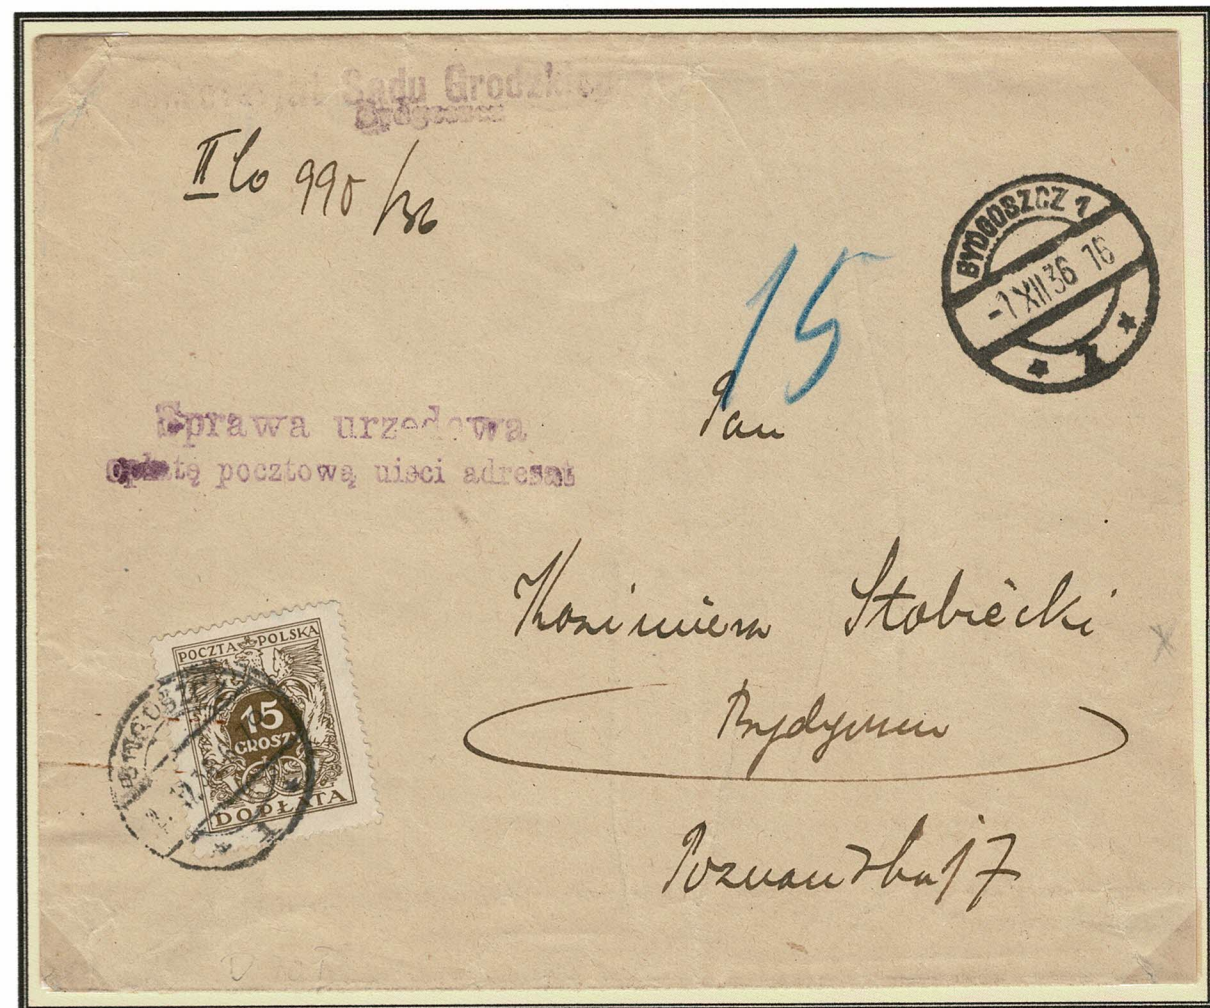 Sądu Grodzkiego
Bydgoszcz
II Co 990/36
BYDGOSZCZ 1
-1 XII 36 16
* *
15
Pan
Sprawa urzędowa
opłatę pocztową uiści adresat
Kazimierz Stobiecki
Bydgoszcz
Poznańska 17
POCZTA POLSKA
15
GROSZY
DOPŁATA
BYDGOSZCZ